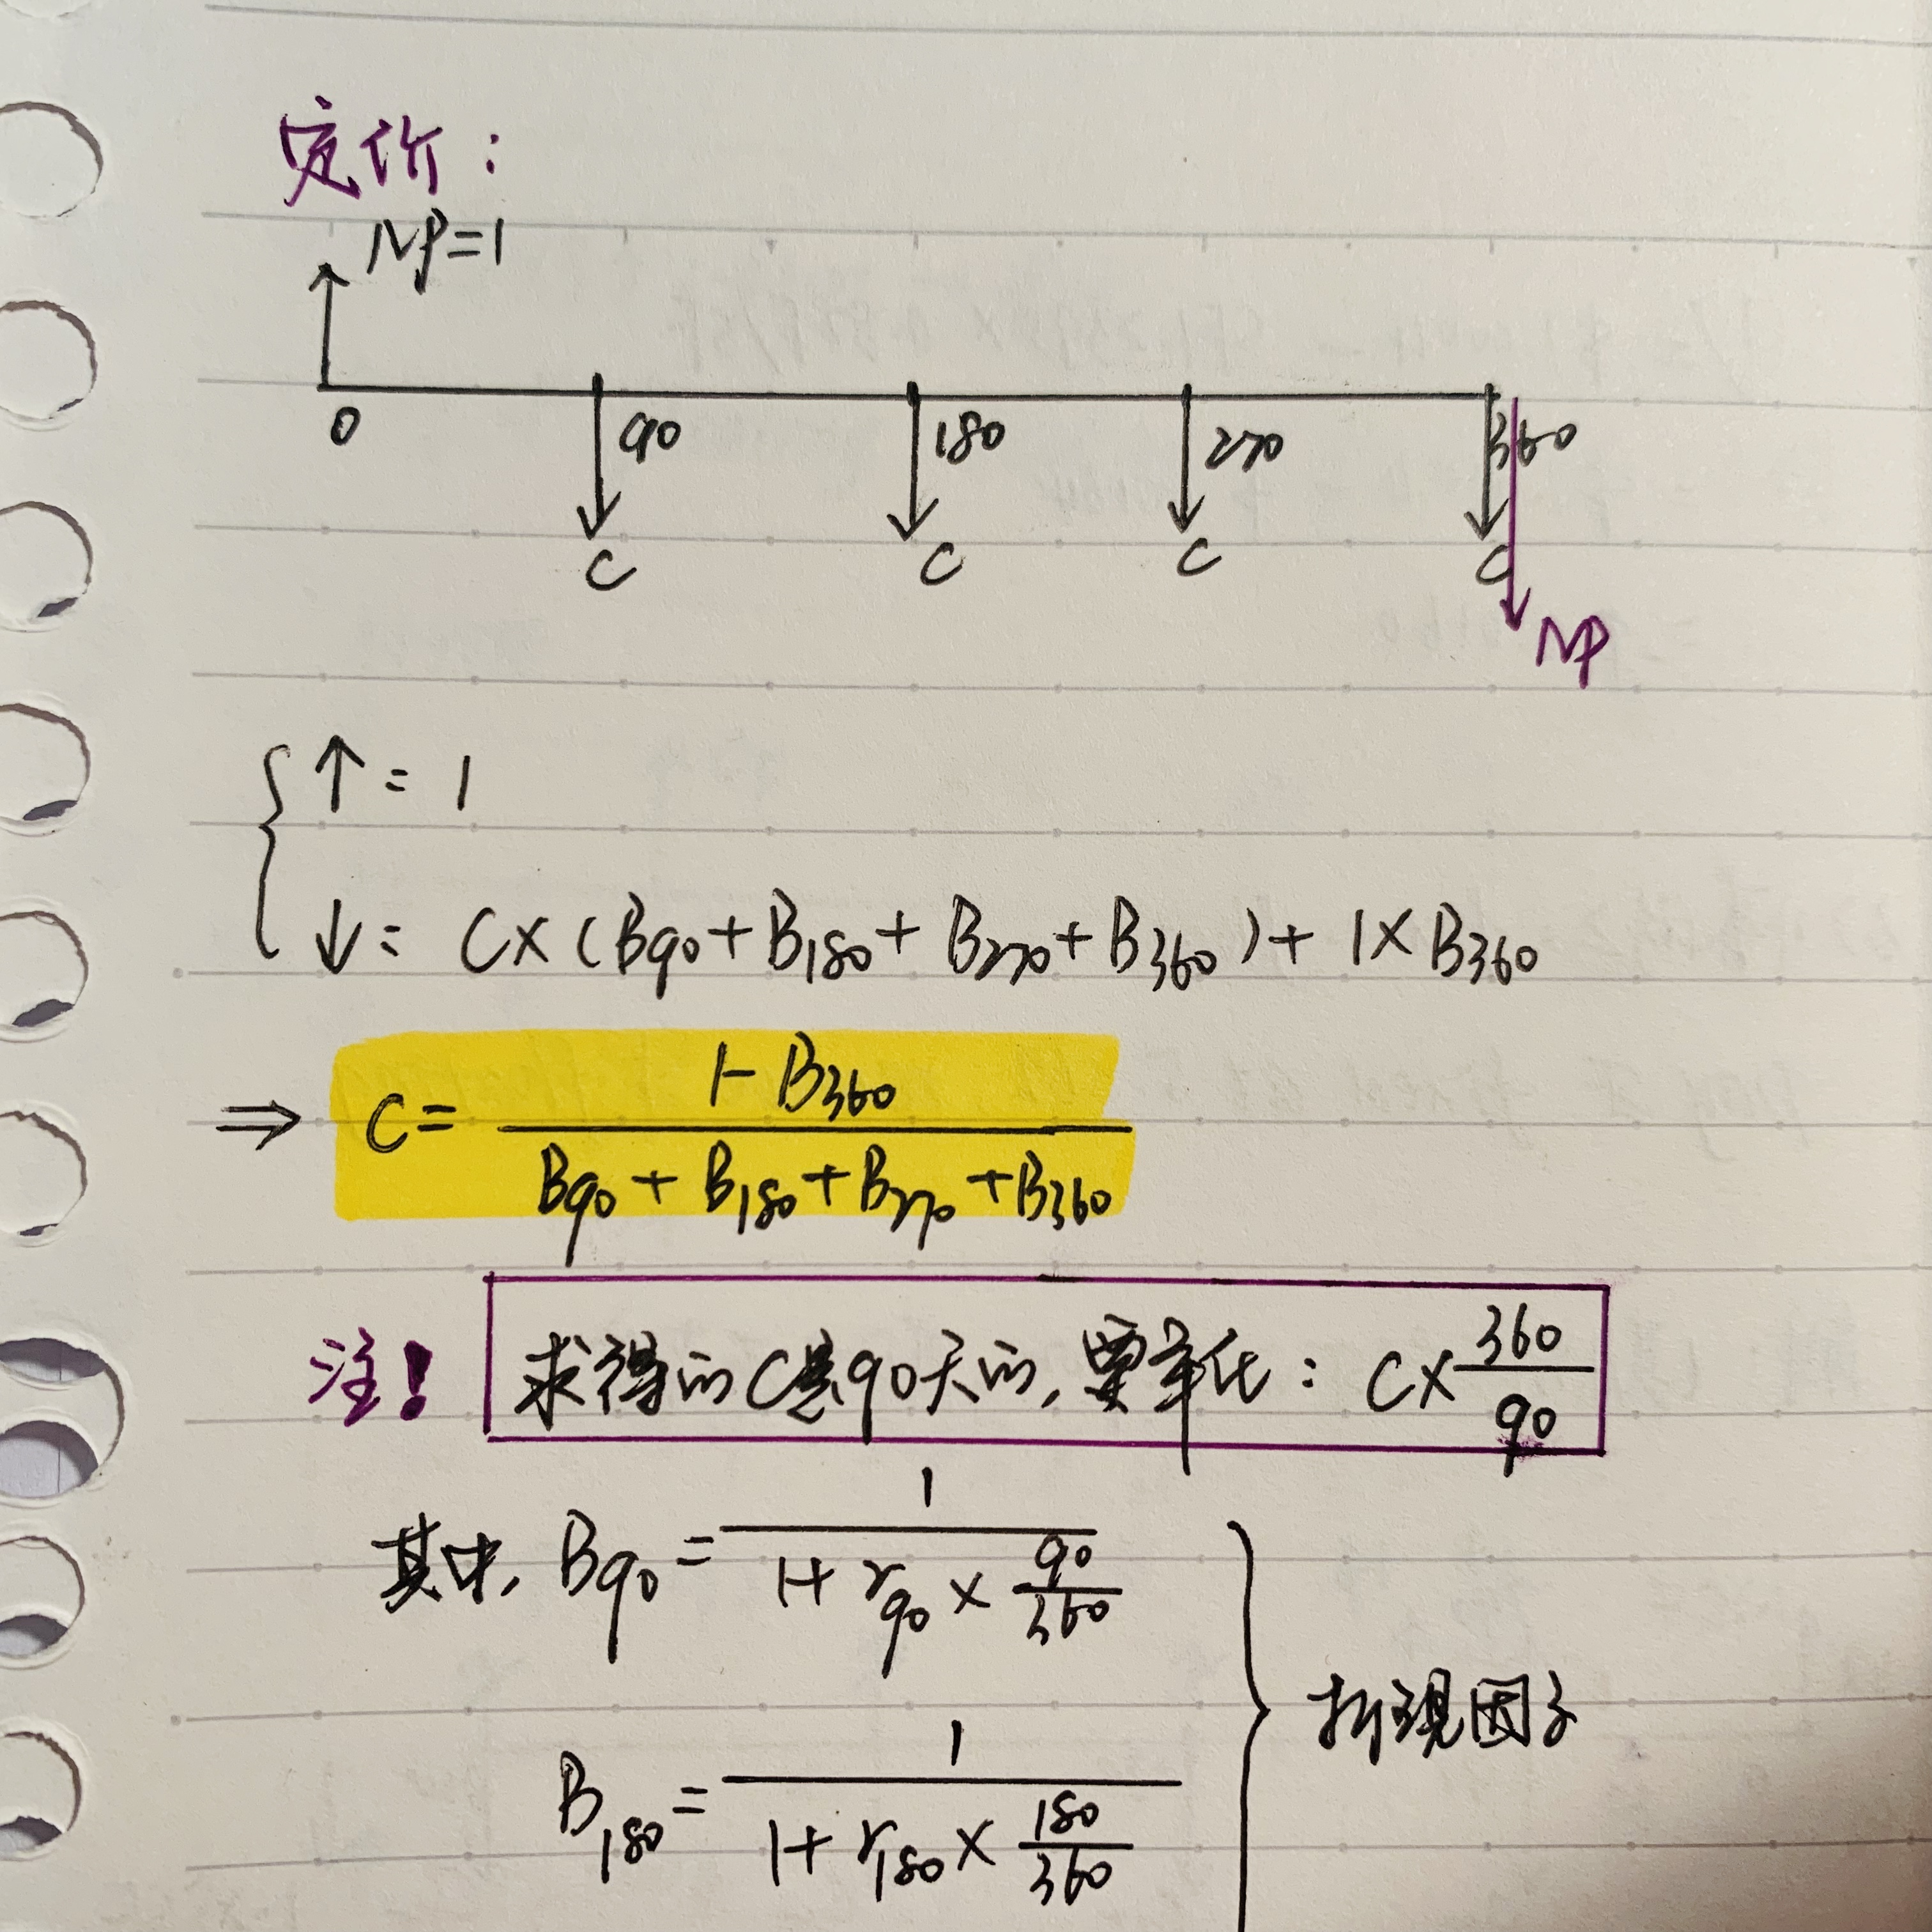 定价：
NP=1
0 90 180 270 360
C C C C
NP
↑= 1
↓= C×(B90+B180+B270+B360)+1×B360
⇒ C= (1-B360)/(B90+B180+B270+B360)
注! 求得的C是90天的,要年化: C×360/90
其中, B90= 1/(1+r90×90/360)
折现因子
B180= 1/(1+r180×180/360)